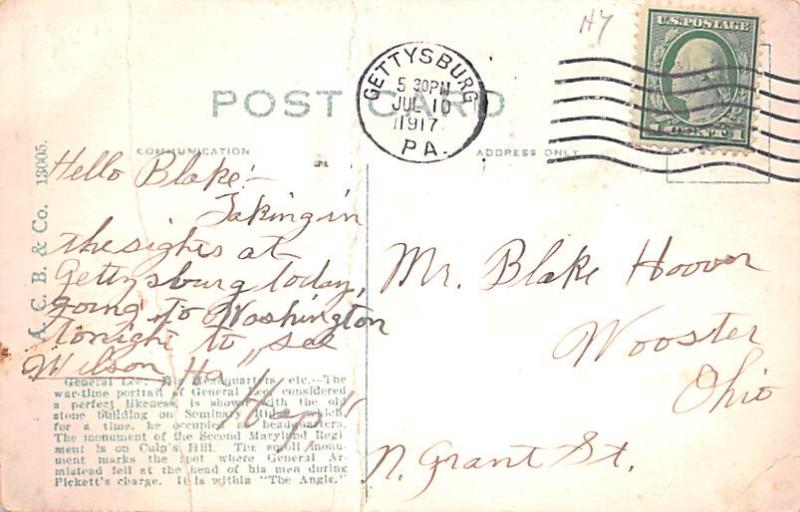 H7
U.S. POSTAGE
1 CENT 1
GETTYSBURG
5 30PM
JUL 10
1917
PA.
POST CARD
COMMUNICATION
ADDRESS ONLY
A. C. B. & Co. 13005.
Hello Blake:-
Taking in
the sights at
Gettysburg today,
going to Washington
tonight to "see
Wilson" Ha
"Hap"
Mr. Blake Hoover
Wooster
Ohio
N. Grant St.
General Lee: His Headquarters, etc.—The
war-time portrait of General Lee, considered
a perfect likeness, is shown with the old
stone building on Seminary Ridge, which,
for a time, he occupied as headquarters.
The monument of the Second Maryland Regi
ment is on Culp's Hill. The scroll monu-
ment marks the spot where General Ar-
mistead fell at the head of his men during
Pickett's charge. It is within "The Angle."